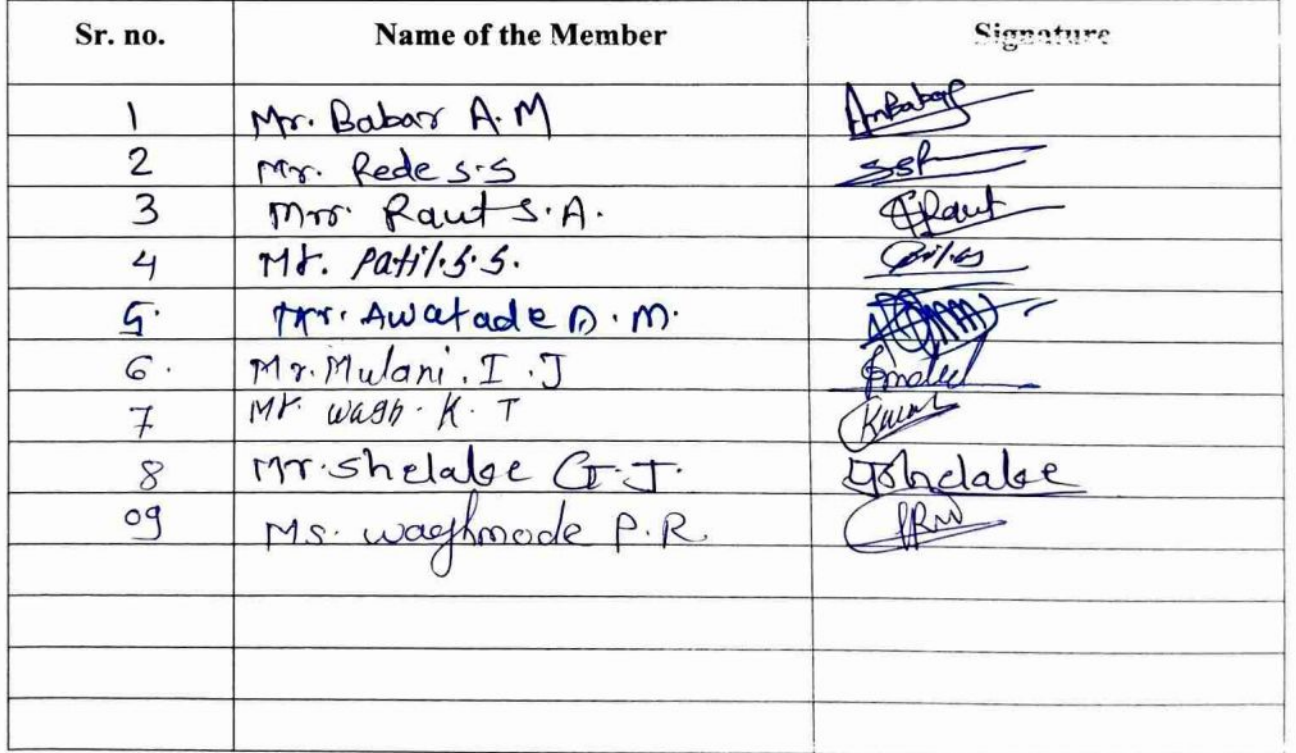 Sr. no. Name of the Member Signature
1 Mr. Babar A.M AmBabar
2 Mr. Rede S.S SSR
3 Mrs. Raut S.A. Raut
4 Mr. Patil.S.S.
5. Mr. Awatade D.M.
6. Mr. Mulani. I.J
7 Mr. Wagh. K. T
8 Mr. Shelake G.J. Shelake
09 Ms. Waghmode P.R. PRW